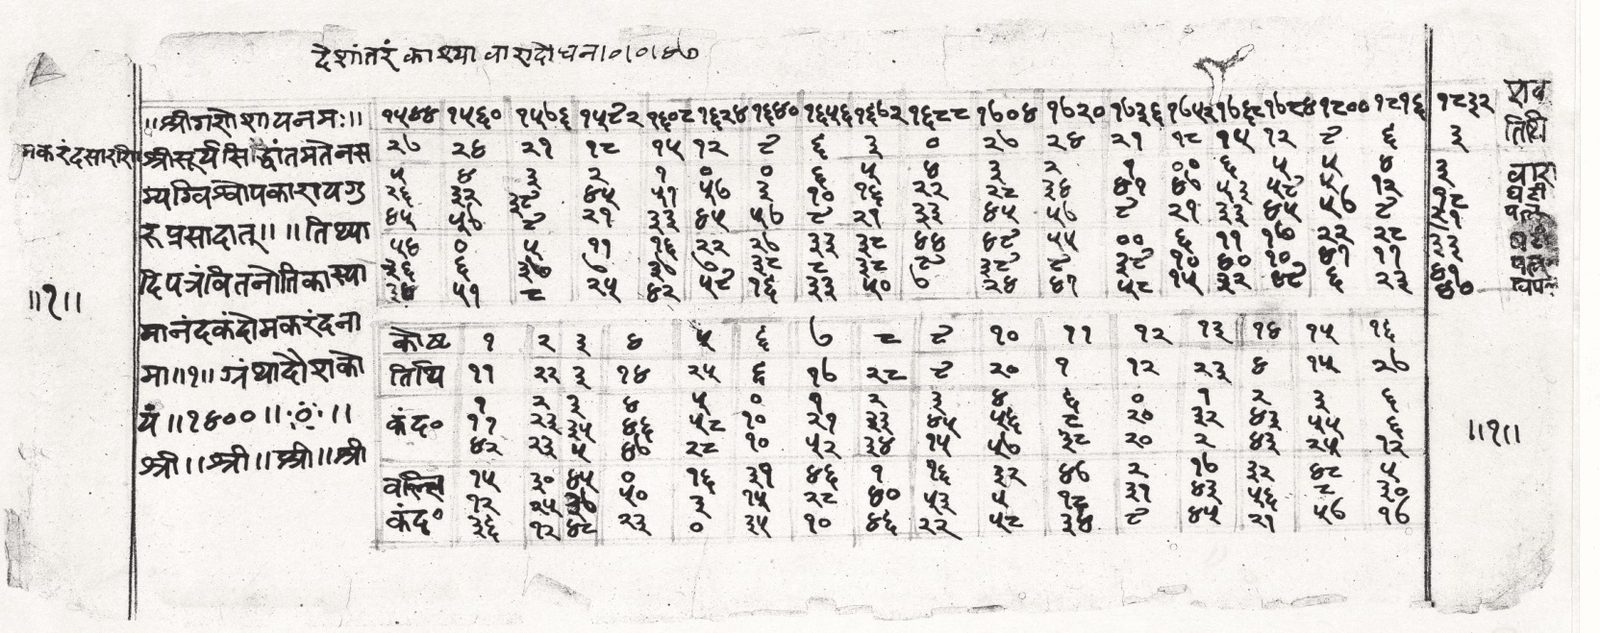 देशांतरं काश्या वारादौ घन।०।०।४७
॥श्रीगणेशायनमः॥
मकरंदसारणी
श्रीसूर्यसिद्धांतमतेनस
म्यग्विश्वोपकारायगु
रूप्रसादात्॥ ॥तिथ्या
दिपत्रंवितनोतिकास्या
मानंदकंदोमकरंदना
मा॥१॥ ग्रंथादौशाको
यं॥१४००॥
श्री॥श्री॥श्री॥श्री
॥१॥
१५४४ १५६० १५७६ १५९२ १६०८ १६२४ १६४० १६५६ १६७२ १६८८ १७०४ १७२० १७३६ १७५२ १७६८ १७८४ १८०० १८१६ १८३२ शक
२७ २४ २१ १८ १५ १२ ९ ६ ३ ० २७ २४ २१ १८ १५ १२ ९ ६ ३ तिथि
५ ४ ३ २ १ ० ० ६ ५ ४ ३ २ १ ०० ६ ५ ५ ४ ३ वारा
२६ ३२ ३९ ४५ ५१ ५७ ३ १० १६ २२ २८ ३४ ४१ ४७ ५३ ५९ ५ १२ १८ घटी
४५ ५७ ९ २१ ३३ ४५ ५७ ९ २१ ३३ ४५ ५७ ९ २१ ३३ ४५ ५७ ९ २१ पल
५४ ० ५ ११ १६ २२ २७ ३३ ३८ ४४ ४९ ५५ ०० ६ ११ १७ २२ २८ ३३
३६ ६ ३७ ७ ३८ ९ ३९ १० ४० १० ४१ ११ ४१ पल
३४ ५१ ८ २५ ४२ ५९ १६ ३३ ५० ७ २४ ४१ ५८ १५ ३२ ४९ ६ २३ ४०
कोष्ट १ २ ३ ४ ५ ६ ७ ८ ९ १० ११ १२ १३ १४ १५ १६
तिथि ११ २२ ३ १४ २५ ६ १७ २८ ९ २० १ १२ २३ ४ १५ २७
१ २ ३ ४ ५ ० १ २ ३ ४ ६ ० १ २ ३ ६
कंद० ११ २३ ३५ ४६ ५८ १० २१ ३३ ४५ ५६ ८ २० ३२ ४३ ५५ ६
४२ २३ ५ ४७ २८ १० ५२ ३४ १५ ५७ ३८ २० २ ४३ २५ १२
वल्लि १५ ३० ४५ ० १६ ३१ ४६ १ १६ ३२ ४७ २ १७ ३२ ४८ ५
१२ २५ ३७ ५० ३ १५ २८ ४० ५३ ५ १८ ३१ ४३ ५६ ८ ३०
कंद० ३६ १२ ४८ २३ ० ३५ १० ४६ २२ ५८ ३४ ९ ४५ २१ ५७ १७
॥१॥